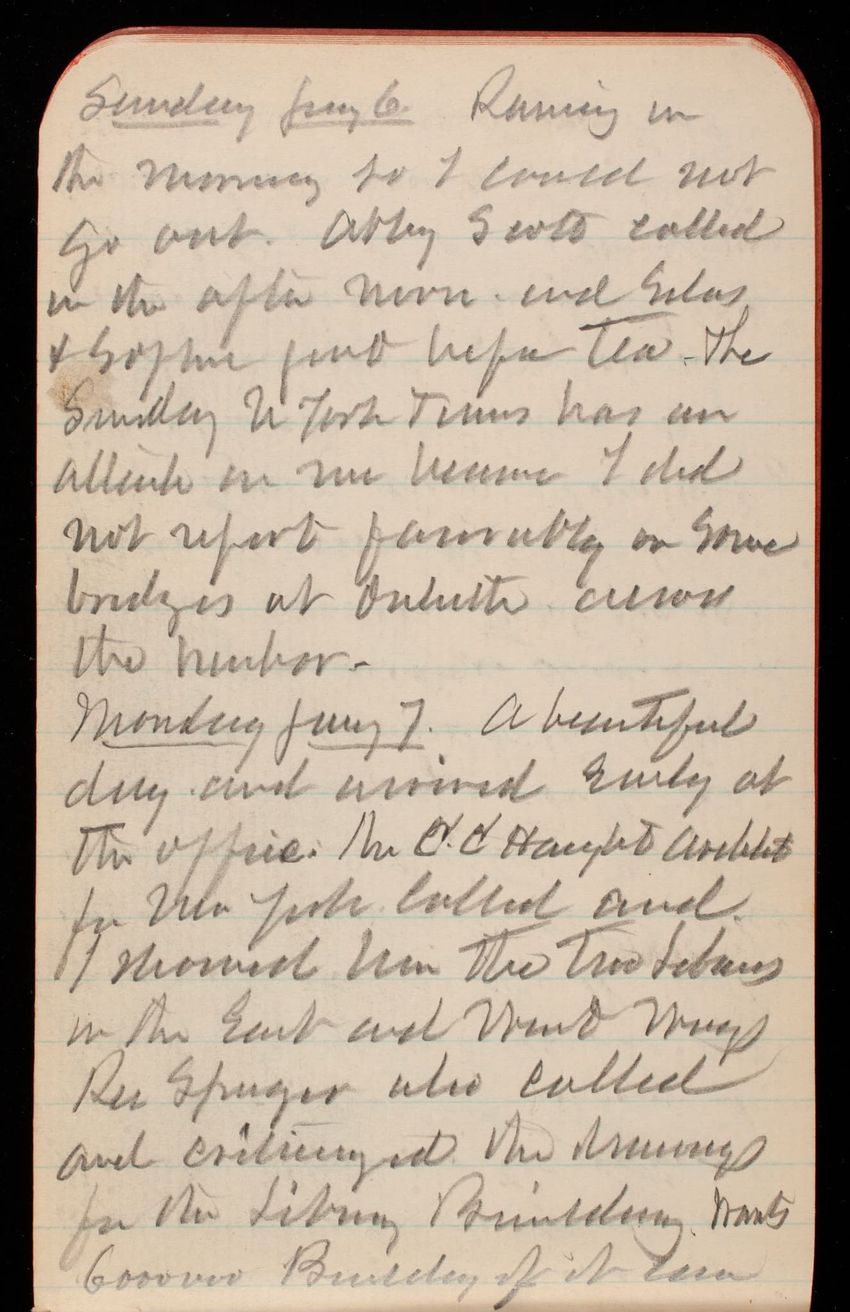 Sunday Jany 6. Raining in
the morning so I could not
go out. Abby Scott called
in the after noon and Silas
& Sophie just before Tea. The
Sunday N York Times has an
attack on me because I did
not report favorably on some
bridges at Duluth across
the harbor.
Monday Jany 7. A beautiful
day and arrived early at
the office. The C.C Haight Architect
for New York called and
I showed him the two Libraries
in the East and West Wings
called
and criticized the drawings
for the Library Building. Wants
6000000 Building if it can